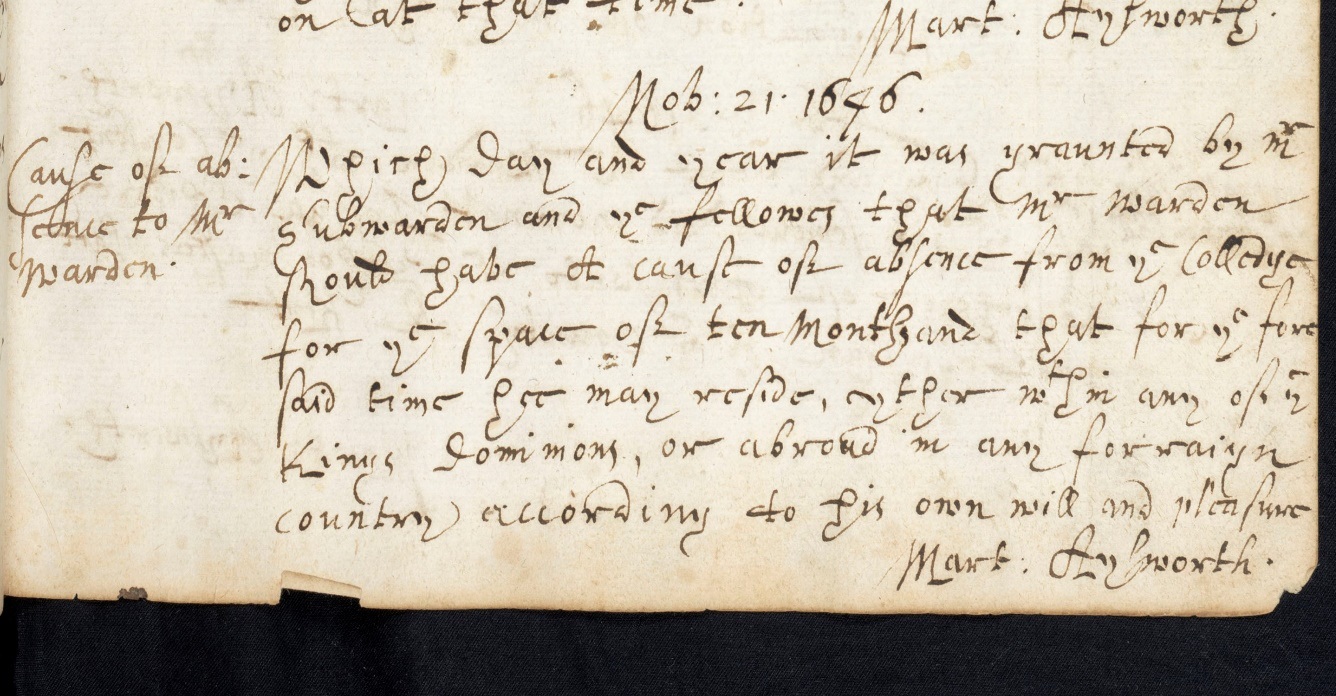 on Cat that time.
Mart: Aylworth.
Nov: 21. 1646.
Cause of ab:
sence to Mr
Warden.
Which day and year it was graunted by mr
Subwarden and ye fellowes that mr Warden
should have A cause of absence from ye Colledge
for ye space of ten Months and that for ye fore
said time hee may reside, eyther wthin any of ye
Kings dominions, or abroad in any forraign
country according to his own will and pleasure
Mart: Aylworth.